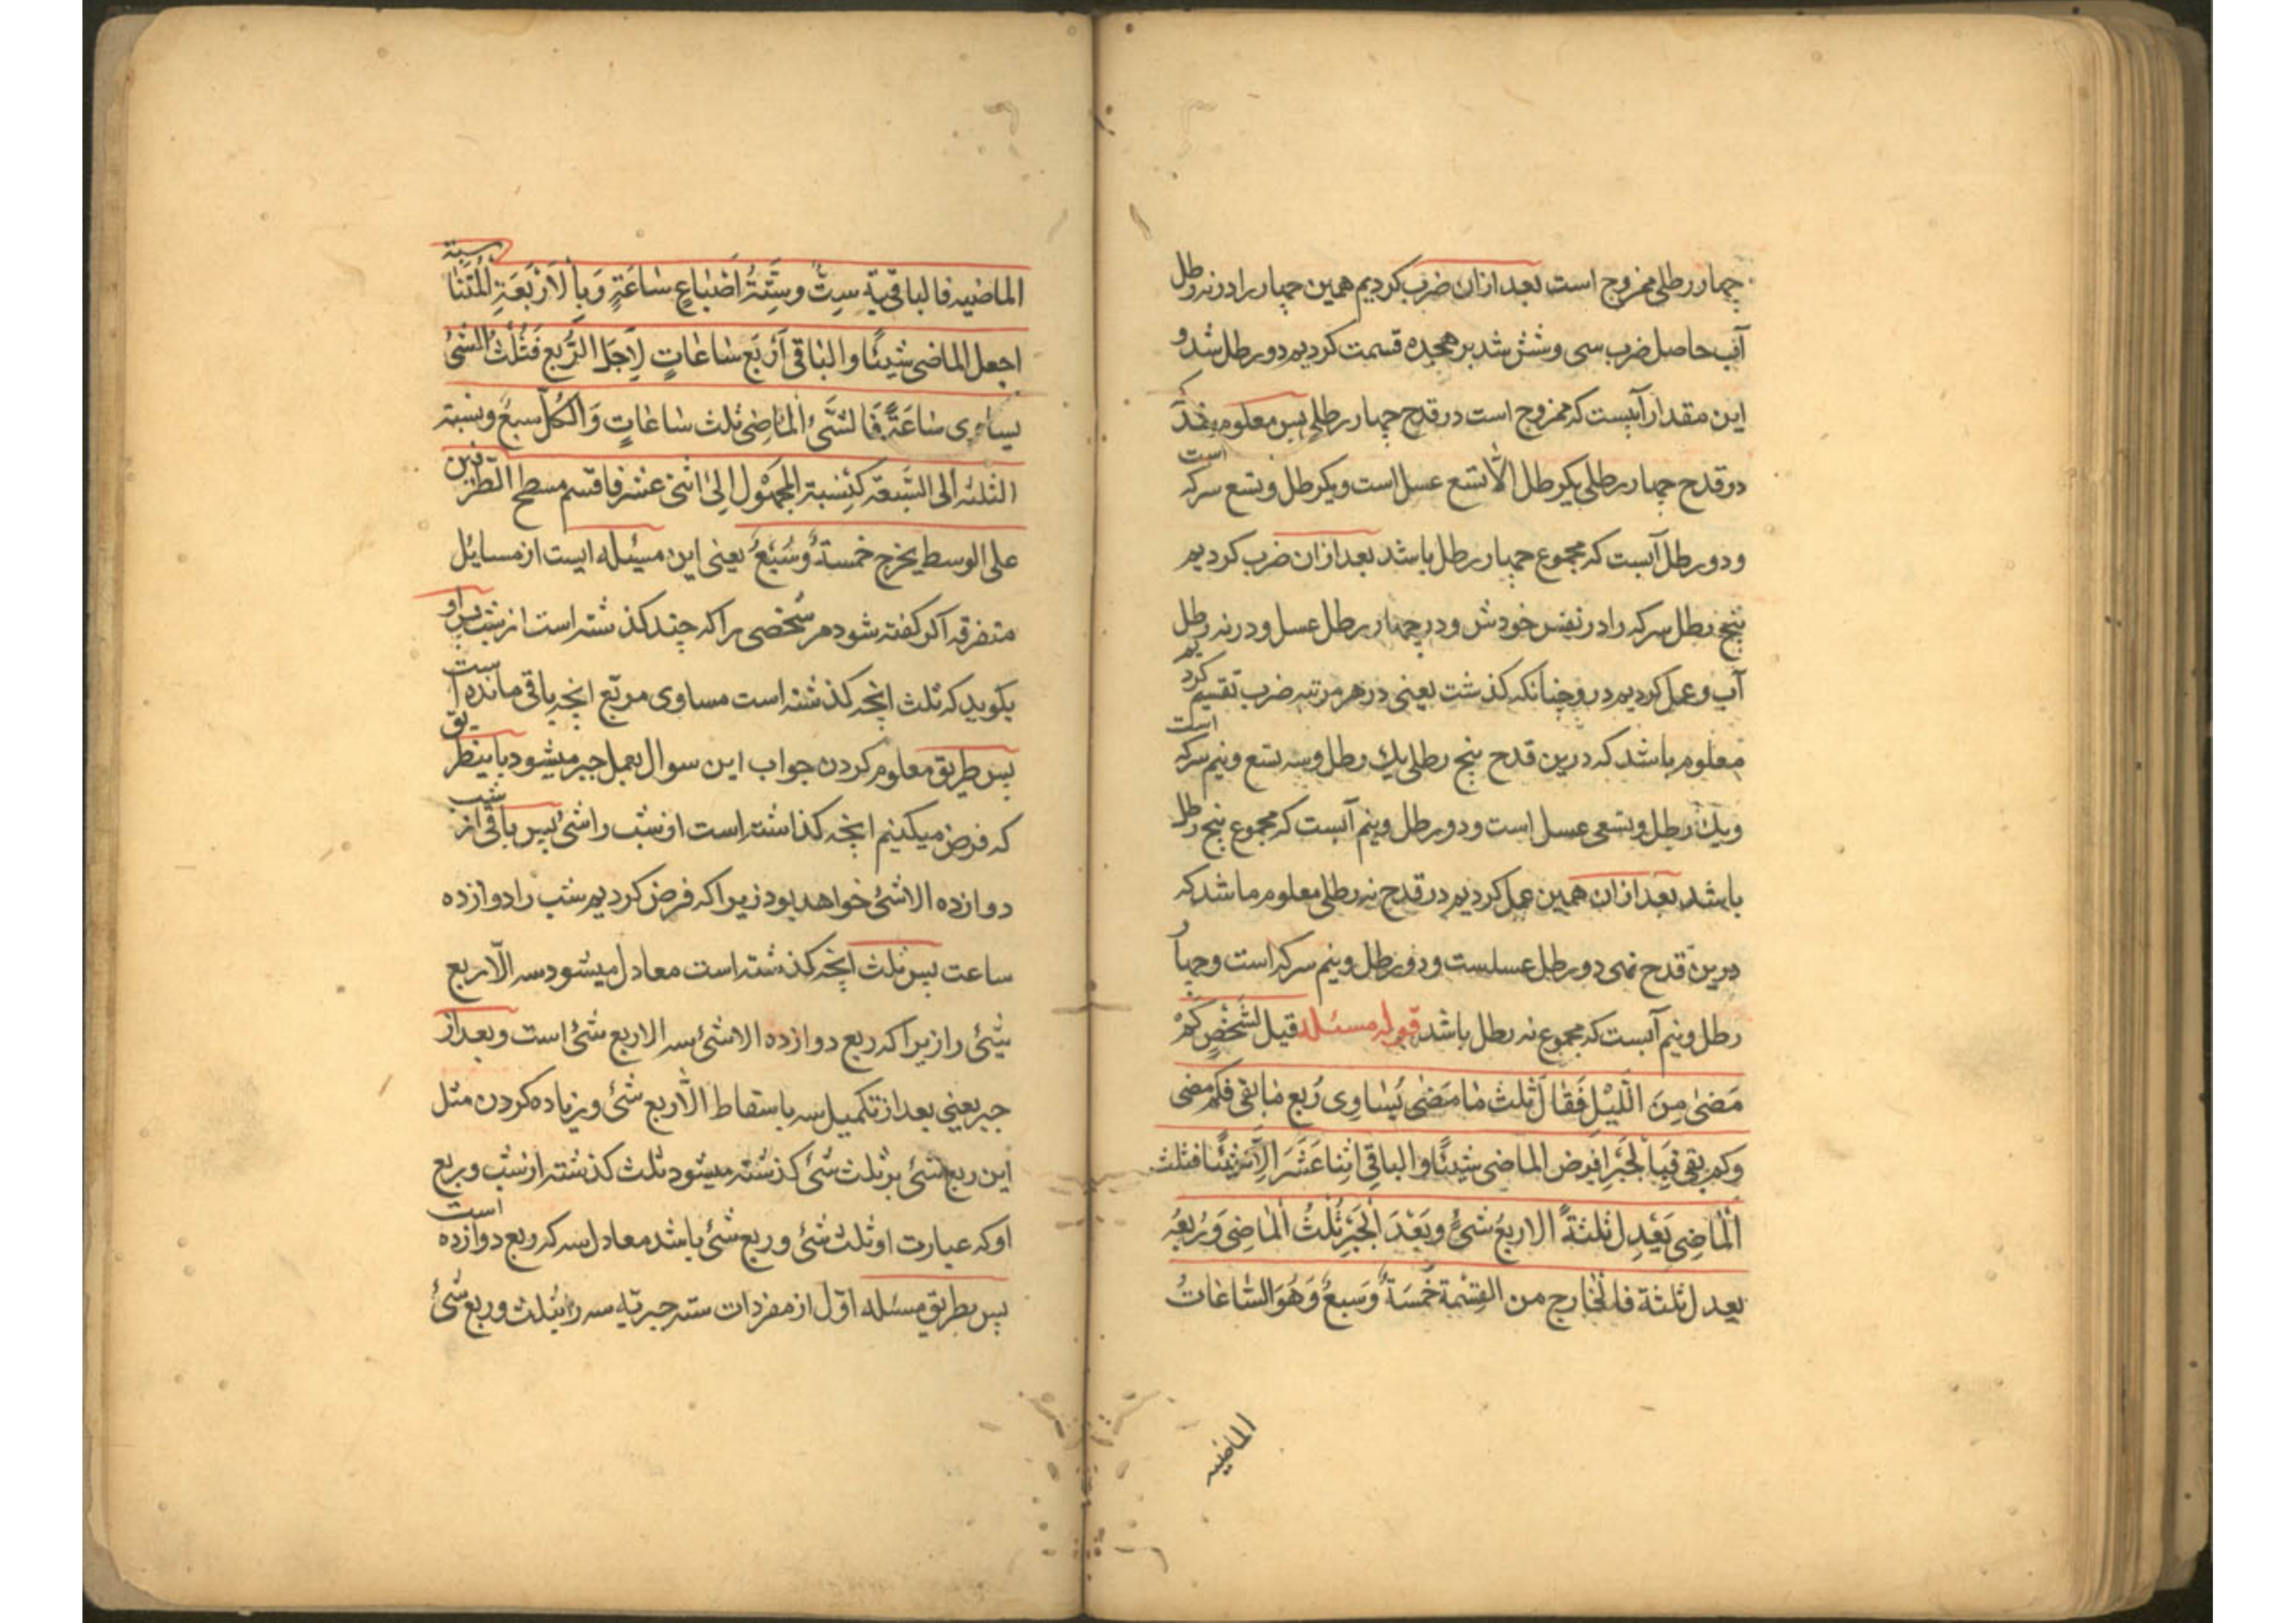 چهار رطلی ممزوج است بعد ازان ضرب کردیم همین چهار را در نه رطل
آب حاصل ضرب سی و شش شد بر هجده قسمت کردیم دو رطل شد و
این مقدار آبیست که ممزوج است در قدح چهار رطلی پس معلوم شد که
در قدح چهار رطلی یکرطل الّا تسع عسل است ویکرطل وتسع سرکه است
و دو رطل آبست که مجموع چهار رطل باشد بعد ازان ضرب کردیم
پنج رطل سرکه را در نفس خودش و در چهار رطل عسل و در نه رطل
آب و عمل کردیم درو چنانکه کذشت یعنی در هر مرتبه ضرب تقسیم کردیم
معلوم باشد که درین قدح پنج رطلی یک رطل وسه تسع ونیم سرکه است
ویک رطل وتسعی عسل است و دو رطل ونیم آبست که مجموع پنج رطل
باشد بعد ازان همین عمل کردیم در قدح نه رطلی معلوم ما شد که
درین قدح نهی دو رطل عسلست و دو رطل ونیم سرکه است وچهار
رطل ونیم آبست که مجموع نه رطل باشد قوله مسئله قیل لشَخْصٍ کَمْ
مَضیٰ مِنَ اللَّیْلِ فَقَالَ ثلث مٰا مَضٰی یُسٰاوِی رُبع مٰا بقی فکم مضی
وکم بقی فَبِالْجَبْرِ افرض الماضی شیئًا والباقی اثنا عَشَرَ الّا شیْئًا فثلث
الْمٰاضِی یَعْدِل ثلٰثةً الا ربعُ شئٍ وبَعْدَ الْجَبْرِ ثُلثُ الْمٰاضِی وَرُبعُه
یعدل ثلٰثة فالْخٰارج من القِسْمة خَمسَةٌ وَسبعٌ وَهُوَ السّٰاعٰاتُ
الماضیه
الماضیه فالباقیة سِتٌّ وسِتّةُ اَسْبٰاعِ سٰاعَةٍ وَبِالْاَرْبَعَةِ الْمُتَنٰاسبة
اجعل الماضی شیئًا والبٰاقی اَرْبَع سٰاعٰاتٍ لِاَجَل الرُّبع فَثُلْثُ الشئ
یساوی سٰاعَةً فَالشَّئُ الْمٰاضِی ثلث سٰاعٰاتٍ وَالکُلّ سبعٌ ونسبة
الثلثه الی السَّبعة کَنِسْبة المجهُول اِلیٰ اثنی عشر فاقسم مسطح الطرفین
علی الوسط یخرج خمسةٌ وسُبْعٌ یعنی این مسئله ایست از مسایل
متفرقه اکر کفته شود مر شخصی را که چند کذشته است از شب پس او
بکوید که ثلث انچه کذشته است مساوی مر ربع انچه باقی مانده است
پس طریق معلوم کردن جواب این سوال بعمل جبر میشود باینطریق
که فرض میکنیم انچه کذاشته است از شب را شئ پس باقی از شب
دوازده الا شئ خواهد بود زیرا که فرض کردیم شب را دوازده
ساعت پس ثلث انچه کذشته است معادل میشود سه الّا ربع
شئ را زیرا که ربع دوازده الا شئ سه الا ربع شئ است وبعد از
جبر یعنی بعد از تکمیل سه باسقاط الّا ربع شئ وزیاده کردن مثل
این ربع شئ بر ثلث شئ کذشته میشود ثلث کذشته از شب وربع
او که عبارت او ثلث شئ وربع شئ باشد معادل سه که ربع دوازده است
پس بطریق مسئله اوّل از مفردات سته جبریه سه را بثلث وربع شئ